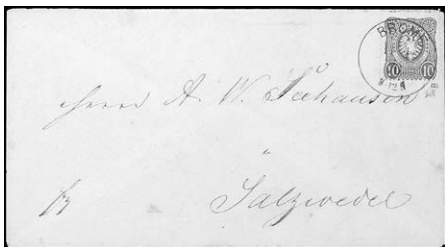 BROME
10 10
Herrn A. W. Seehausen
Salzwedel